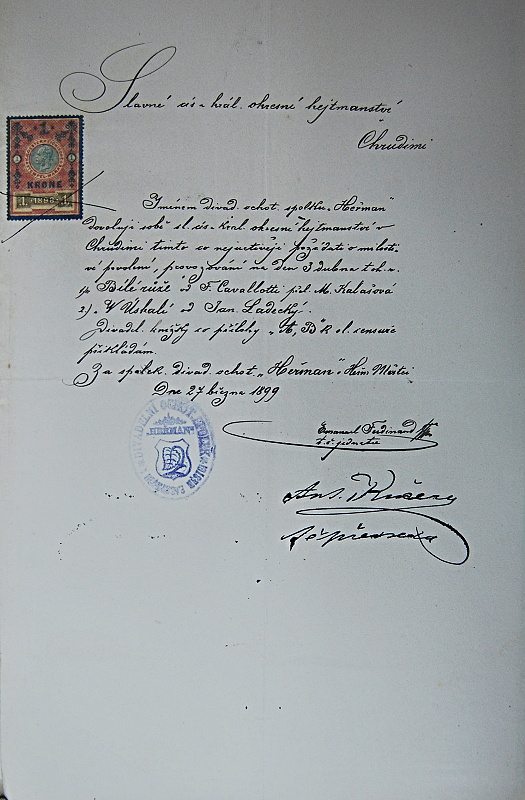 Slavné cís. král. okresné hejtmanství
v
Chrudimi
1
KRONE
1 1898 1
Jménem divad. ochot. spolku „Heřman"
dovoluji sobě sl. cís. král. okresné hejtmanství v
Chrudimi tímto co nejuctivěji požádati o milosti-
vé povolení, provozování na den 3 dubna t. r.
1) „Bílé růže" od F. Cavallotti přel. M. Kalašová
2) „V Úskalí" od Jan. Ladecký.
Divadel. knížky co přílohy „A, B" k sl. censuře
přikládám.
Za spolek divad. ochot. „Heřman" v Heřm. Městci
Dne 27 března 1899
Emanuel Ferdinand
t. č. jednatel
Ant. Kučera
t č předseda
DIVADELNÍ OCHOT. SPOLEK
„HEŘMAN"